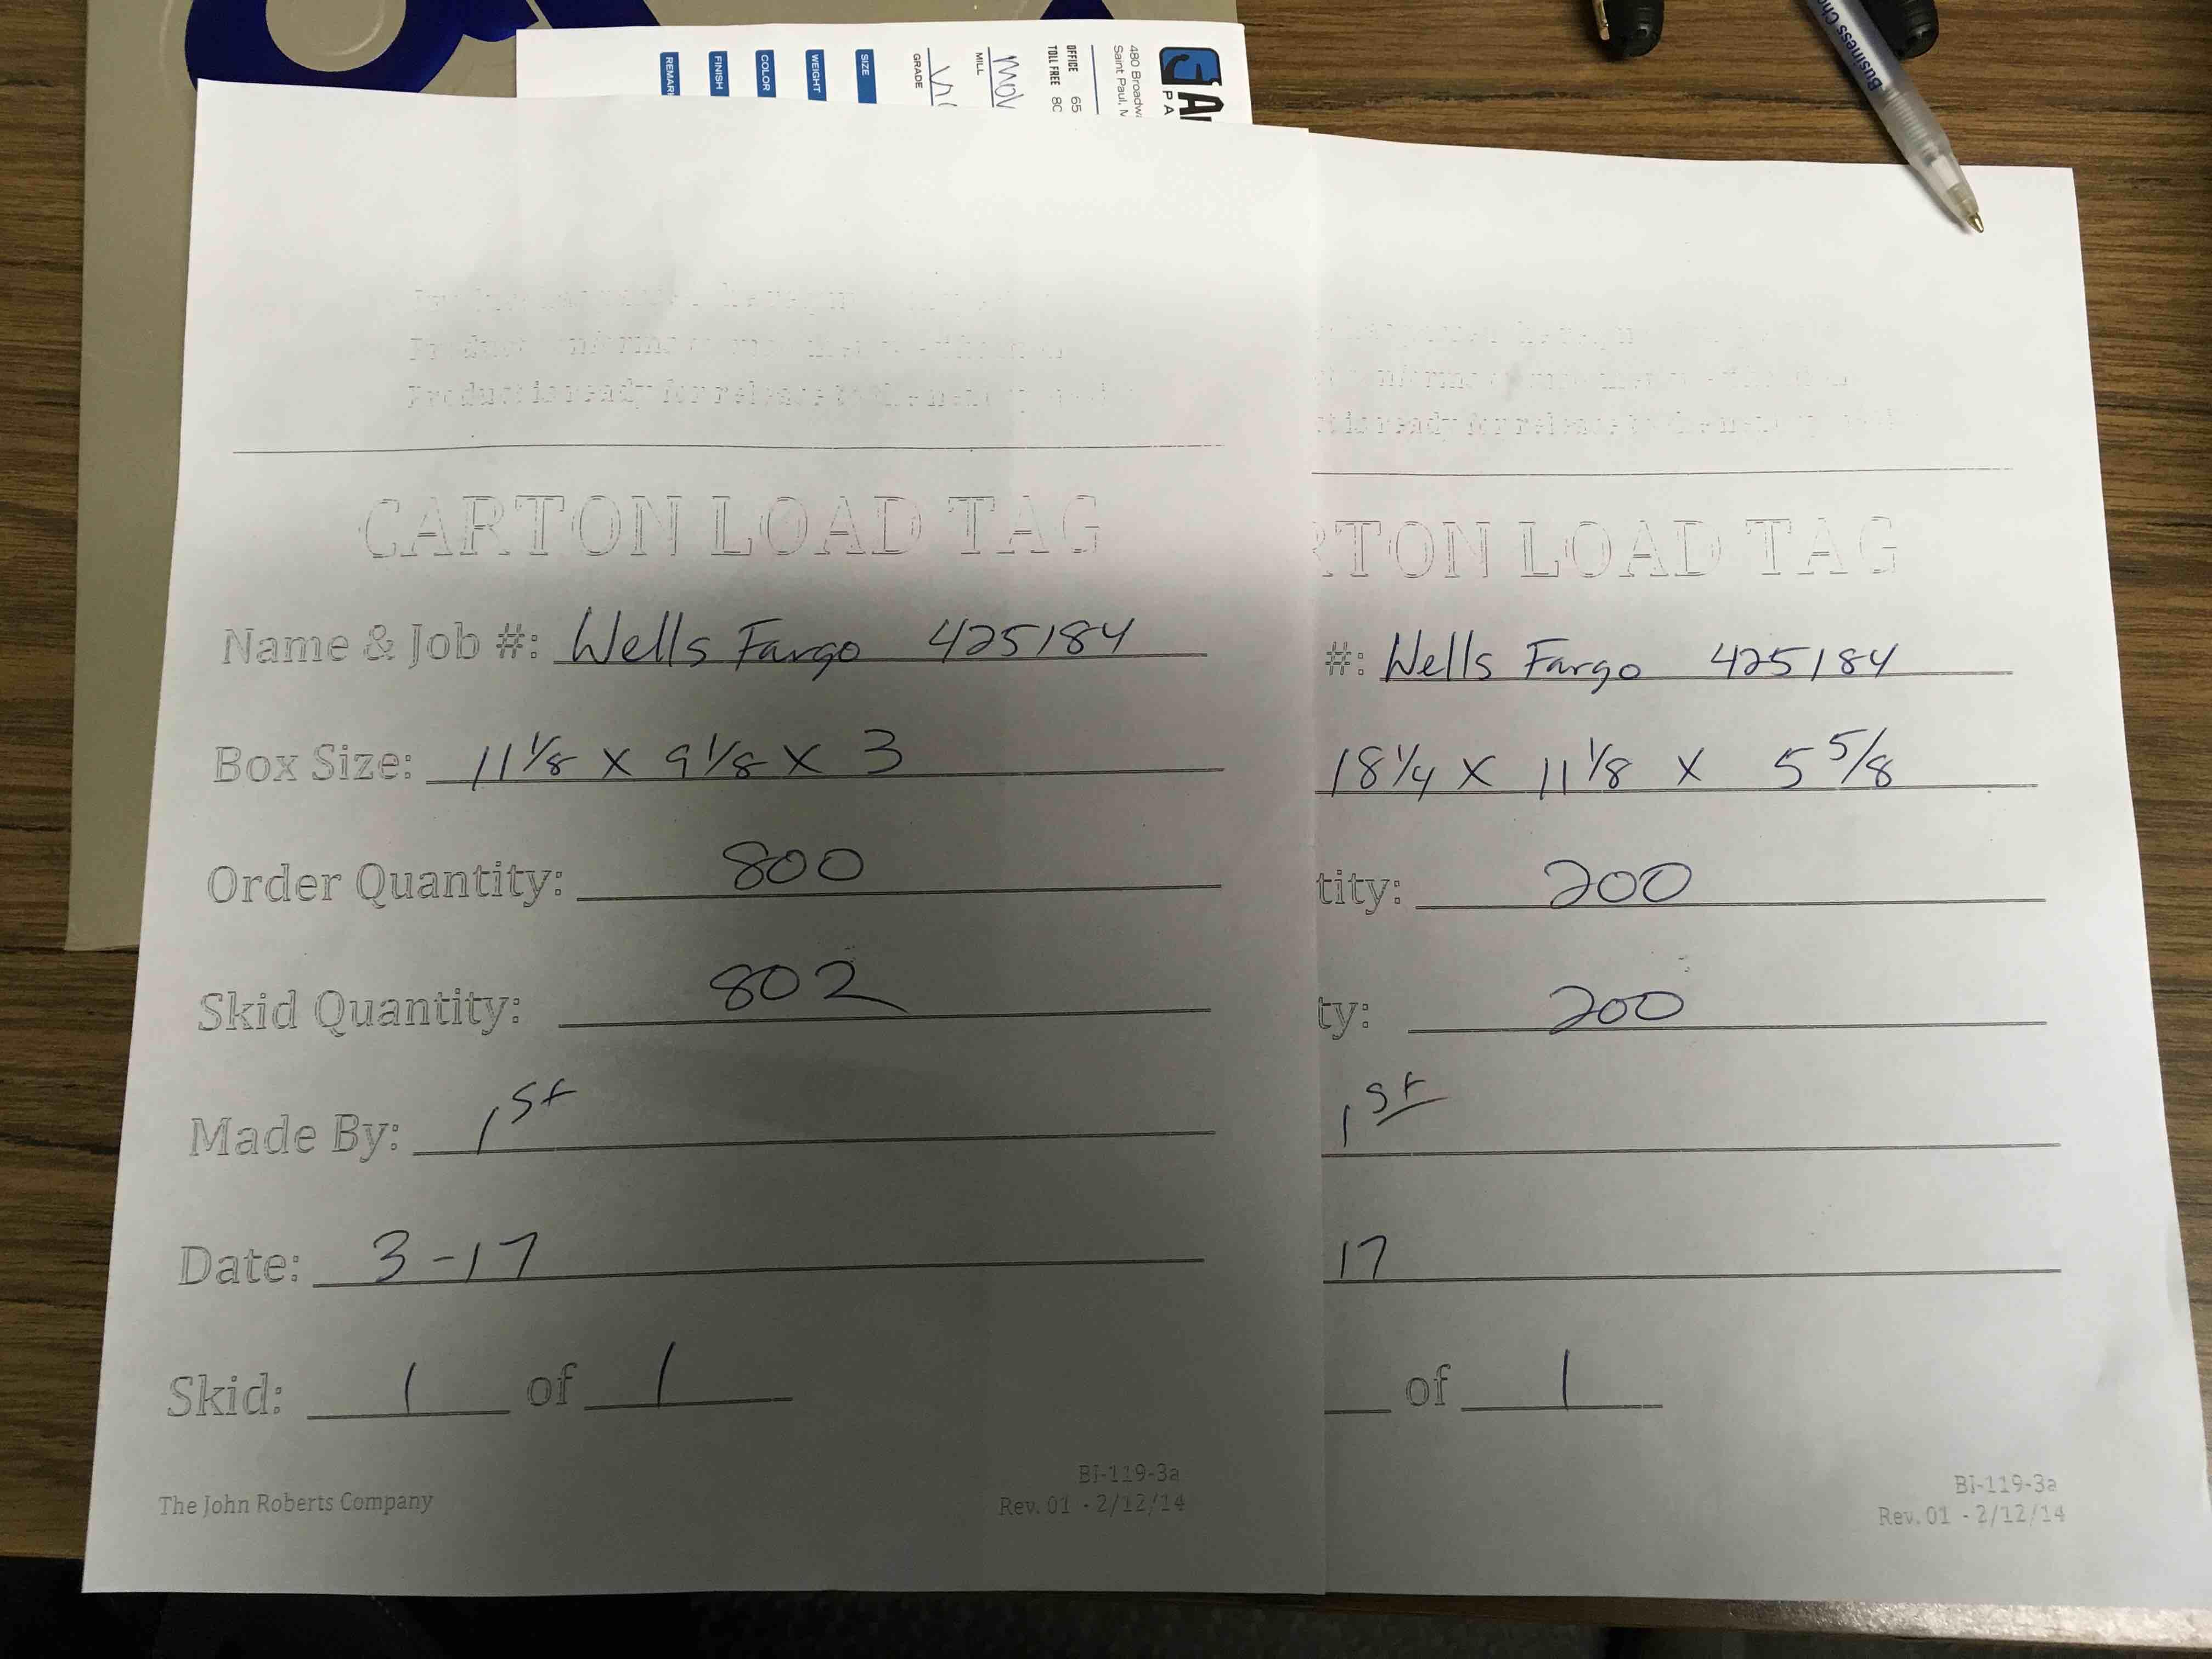 Business Che
480 Broadw
Saint Paul, M
OFFICE 65
TOLL FREE 80
MILL
GRADE
SIZE
WEIGHT
COLOR
FINISH
REMAR
Product is ready for release to the
CARTON LOAD TAG
Name & Job #: Wells Fargo 425184
Box Size: 11 1/8 x 9 1/8 x 3
Order Quantity: 800
Skid Quantity: 802
Made By: 1st
Date: 3-17
Skid: 1 of 1
The John Roberts Company
BI-119-3a
Rev. 01 - 2/12/14
RTON LOAD TAG
#: Wells Fargo 425184
18 1/4 x 11 1/8 x 5 5/8
tity: 200
ty: 200
1st
17
of 1
BI-119-3a
Rev. 01 - 2/12/14